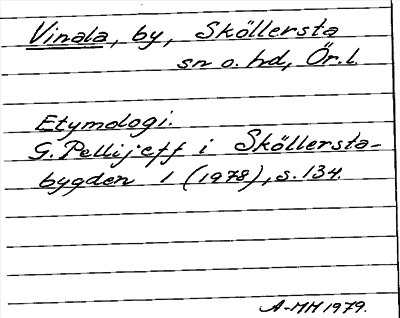 Vinala, by, Sköllersta
sn o. hd, Ör.l.
Etymologi.
G. Pellijeff i Sköllersta-
bygden 1 (1978), s. 134.
A-MH 1979.